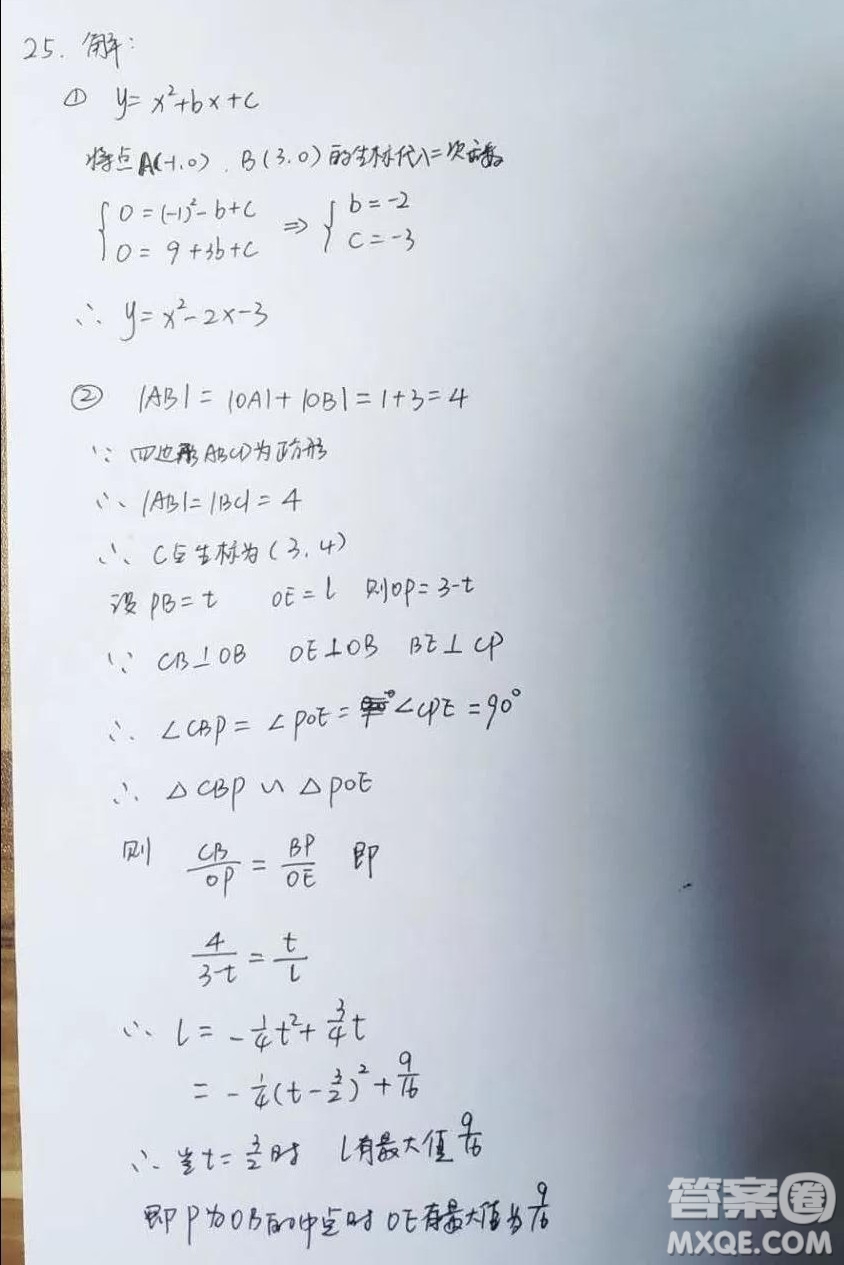 25. 解:
① y=x²+bx+c
将点A(-1,0),B(3,0)的坐标代入二次函数
{0=(-1)²-b+c ⇒ {b=-2
{0=9+3b+c {c=-3
∴ y=x²-2x-3
② |AB|=|OA|+|OB|=1+3=4
∵ 四边形ABCD为正方形
∴ |AB|=|BC|=4
∴ C点坐标为(3,4)
设PB=t OE=l 则OP=3-t
∵ CB⊥OB OE⊥OB BE⊥CP
∴ ∠CBP=∠POE=∠CPE=90°
∴ △CBP∽△POE
则 CB/OP=BP/OE 即
4/3-t=t/l
∴ l=-1/4t²+3/4t
=-1/4(t-3/2)²+9/16
∴ 当t=3/2时 l有最大值9/16
即P为OB的中点时OE有最大值为9/16
答案圈
MXQE.COM